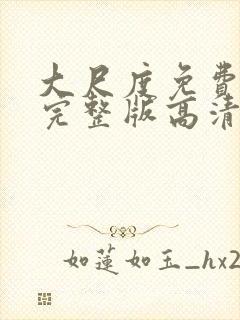 大尺度免费
完整版高清
如莲如玉_hx2